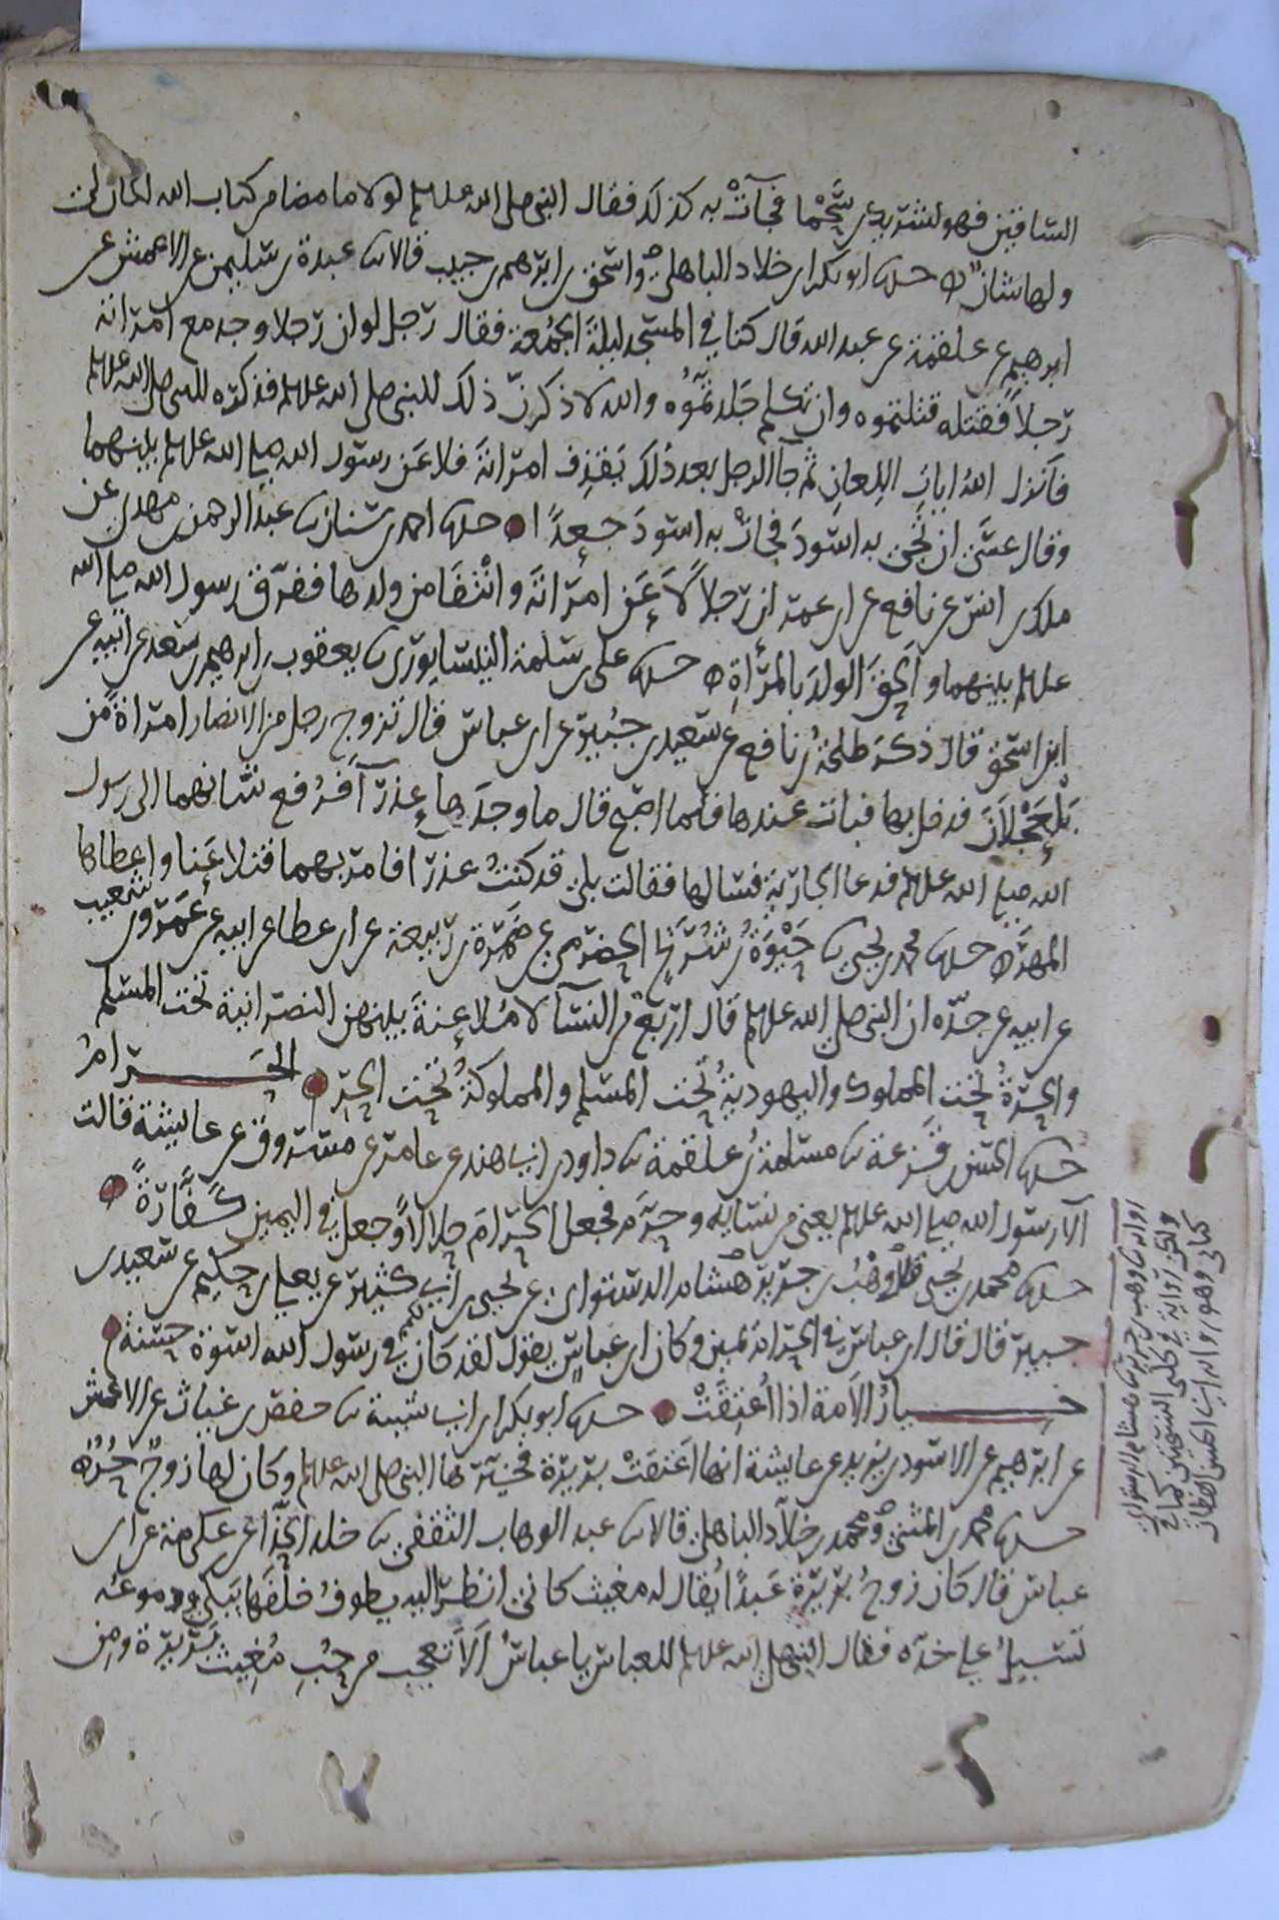 الساقين فهو لشريك بن سحما فجآت به كذلك فقال النبي صلى الله عليه وسلم لولا ما مضا من كتاب الله لكان لي
ولها شان حدثنا ابو بكر بن خلاد الباهلي واسحق بن ابرهيم بن حبيب قالا ثنا عبدة بن سليمن عن الاعمش عن
ابرهيم عن علقمة عن عبد الله قال كنا في المسجد ليلة الجمعة فقال رجل لو ان رجلا وجد مع امراته
رجلا فقتله قتلتموه وان تكلم جلدتموه والله لاذكرن ذلك للنبي صلى الله عليه وسلم فذكره للنبي صلى الله عليه وسلم
فانزل الله ايات اللعان ثم جا الرجل بعد ذلك بقذف امراته فلاعن رسول الله صلى الله عليه وسلم بينهما
وقال عسى ان تجي به اسود فجات به اسود جعدا حدثنا احمد بن سنان ثنا عبد الرحمن بن مهدي عن
ملك بن انس عن نافع عن ابن عمر ان رجلا لاعن امراته وانتفا من ولدها ففرق رسول الله صلى الله
عليه وسلم بينهما والحق الولد بالمرأة حدثنا علي بن سلمة النيسابوري ثنا يعقوب بن ابرهيم بن سعد عن ابيه عن
ابن اسحق قال ذكر طلحة بن نافع عن سعيد بن جبير عن ابن عباس قال تزوج رجل من الانصار امراة من
بلعجلان فدخل بها فبات عندها فلما اصبح قال ما وجدها عذرآ فرفع شانهما الى رسول
الله صلى الله عليه وسلم فدعا الجارية فسالها فقالت بلى قد كنت عذرا فامر بهما فتلاعنا واعطاها
المهر حدثنا محمد بن يحيى ثنا حيوة بن شريح الحضرمي عن ضمرة بن ربيعة عن ابن عطا عن ابيه عن عمرو بن شعيب
عن ابيه عن جده ان النبي صلى الله عليه وسلم قال اربع من النسآ لا ملاعنة بينهن النصرانية تحت المسلم
والحرة تحت المملوك واليهودية تحت المسلم والمملوكة تحت الحر الحرام
حدثنا الحسن بن قزعة ثنا مسلمة بن علقمة ثنا داود بن ابي هند عن عامر عن مسروق عن عايشة قالت
آلا رسول الله صلى الله عليه وسلم يعني من نسايه وحرم فجعل الحرام حلالا وجعل في اليمين كفارة
حدثنا محمد بن يحيى ثنا وهب بن جرير ثنا هشام الدستواي عن يحيى بن ابي كثير عن يعلى بن حكيم عن سعيد بن
جبير قال قال ابن عباس في الحرام يمين وكان ابن عباس يقول لقد كان لكم في رسول الله اسوة حسنة
خيار الامة اذا اعتقت حدثنا ابو بكر بن ابي شيبة ثنا حفص بن غياث عن الاعمش
عن ابرهيم عن الاسود بن يزيد عن عايشة انها اعتقت بريرة فخيرها النبي صلى الله عليه وسلم وكان لها زوج حر
حدثنا محمد بن المثنى ومحمد بن خلاد الباهلي قالا ثنا عبد الوهاب الثقفي ثنا خلد الحذآ عن عكرمة عن ابن
عباس قال كان زوج بريرة عبدا يقال له مغيث كاني انظر اليه يطوف خلفها يبكي ودموعه
تسيل على خده فقال النبي صلى الله عليه وسلم للعباس يا عباس الا تعجب من حب مغيث بريرة ومن
وهب بن جرير ثنا هشام الدستواي